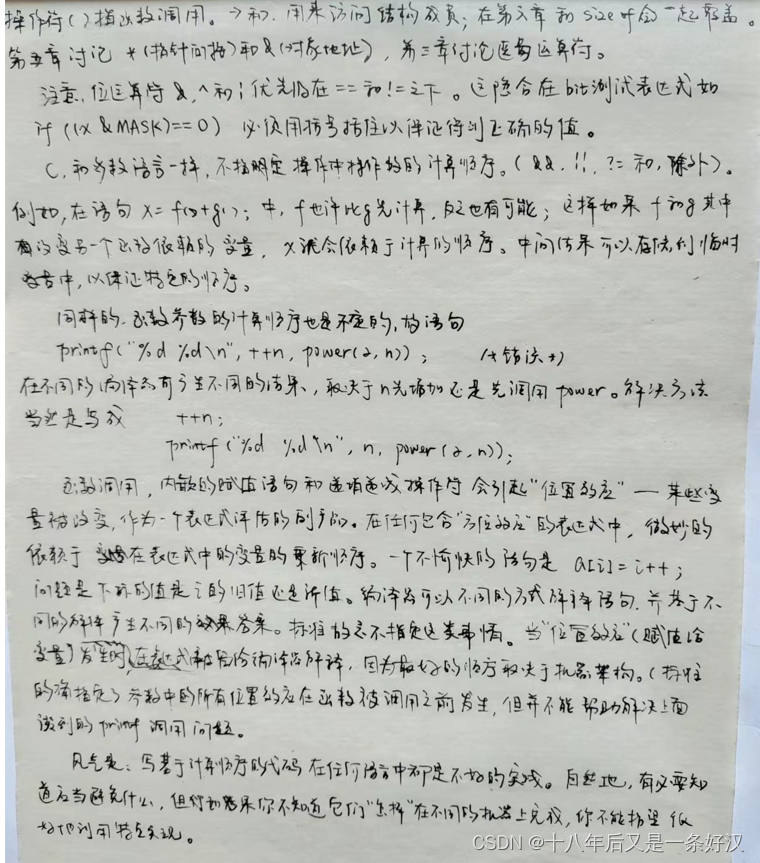 操作符()指函数调用。->和.用来访问结构成员;在第六章和sizeof会一起覆盖。
第五章讨论 *(指针间接)和&(对象地址),第三章讨论逗号运算符。
注意,位运算符&,^和|优先级在==和!=之下。这隐含在bit测试表达式如
if ((x & MASK)==0) 必须用括号括住以保证得到正确的值。
C,和多数语言一样,不指明定操作中操作数的计算顺序。(&&, ||, ?=和,除外)。
例如,在语句 x= f()+g(); 中,f也许比g先计算,反之也有可能;这样如果f和g其中
改变另一个函数依赖的变量,x就会依赖于计算的顺序。中间结果可以存储到临时
变量中,以保证特定的顺序。
同样的,函数参数的计算顺序也是不定的,故语句
printf("%d %d\n", ++n, power(2,n)); /*错误*/
在不同的编译器可产生不同的结果,取决于n先增加还是先调用power。解决方法
当然是写成 ++n;
printf("%d %d\n", n, power(2,n));
函数调用,内嵌的赋值语句和递增递减操作符会引起"位置效应"—某些变
量被改变,作为一个表达式评估的副产品。在任何包含"位置效应"的表达式中,微妙的
依赖于在表达式中的变量的更新顺序。一个不愉快的语句是 a[i]=i++;
问题是下标的值是i的旧值还是新值。编译器可以不同的方式解释语句,并基于不
同的解释产生不同的答案。标准故意不指定这类事情。当"位置效应"(赋值给
变量)发生时,在表达式留给编译器解释,因为最好的顺序取决于机器架构。(标准
的确指定了参数中的所有位置效应在函数被调用之前发生,但并不能帮助解决上面
谈到的printf调用问题。
风气是:写基于计算顺序的代码在任何语言中都是不好的实践。自然地,有必要知
道应当避免什么,但如果你不知道它们"怎样"在不同的机器上完成,你不能指望很
好地利用特定实现。
CSDN @十八年后又是一条好汉